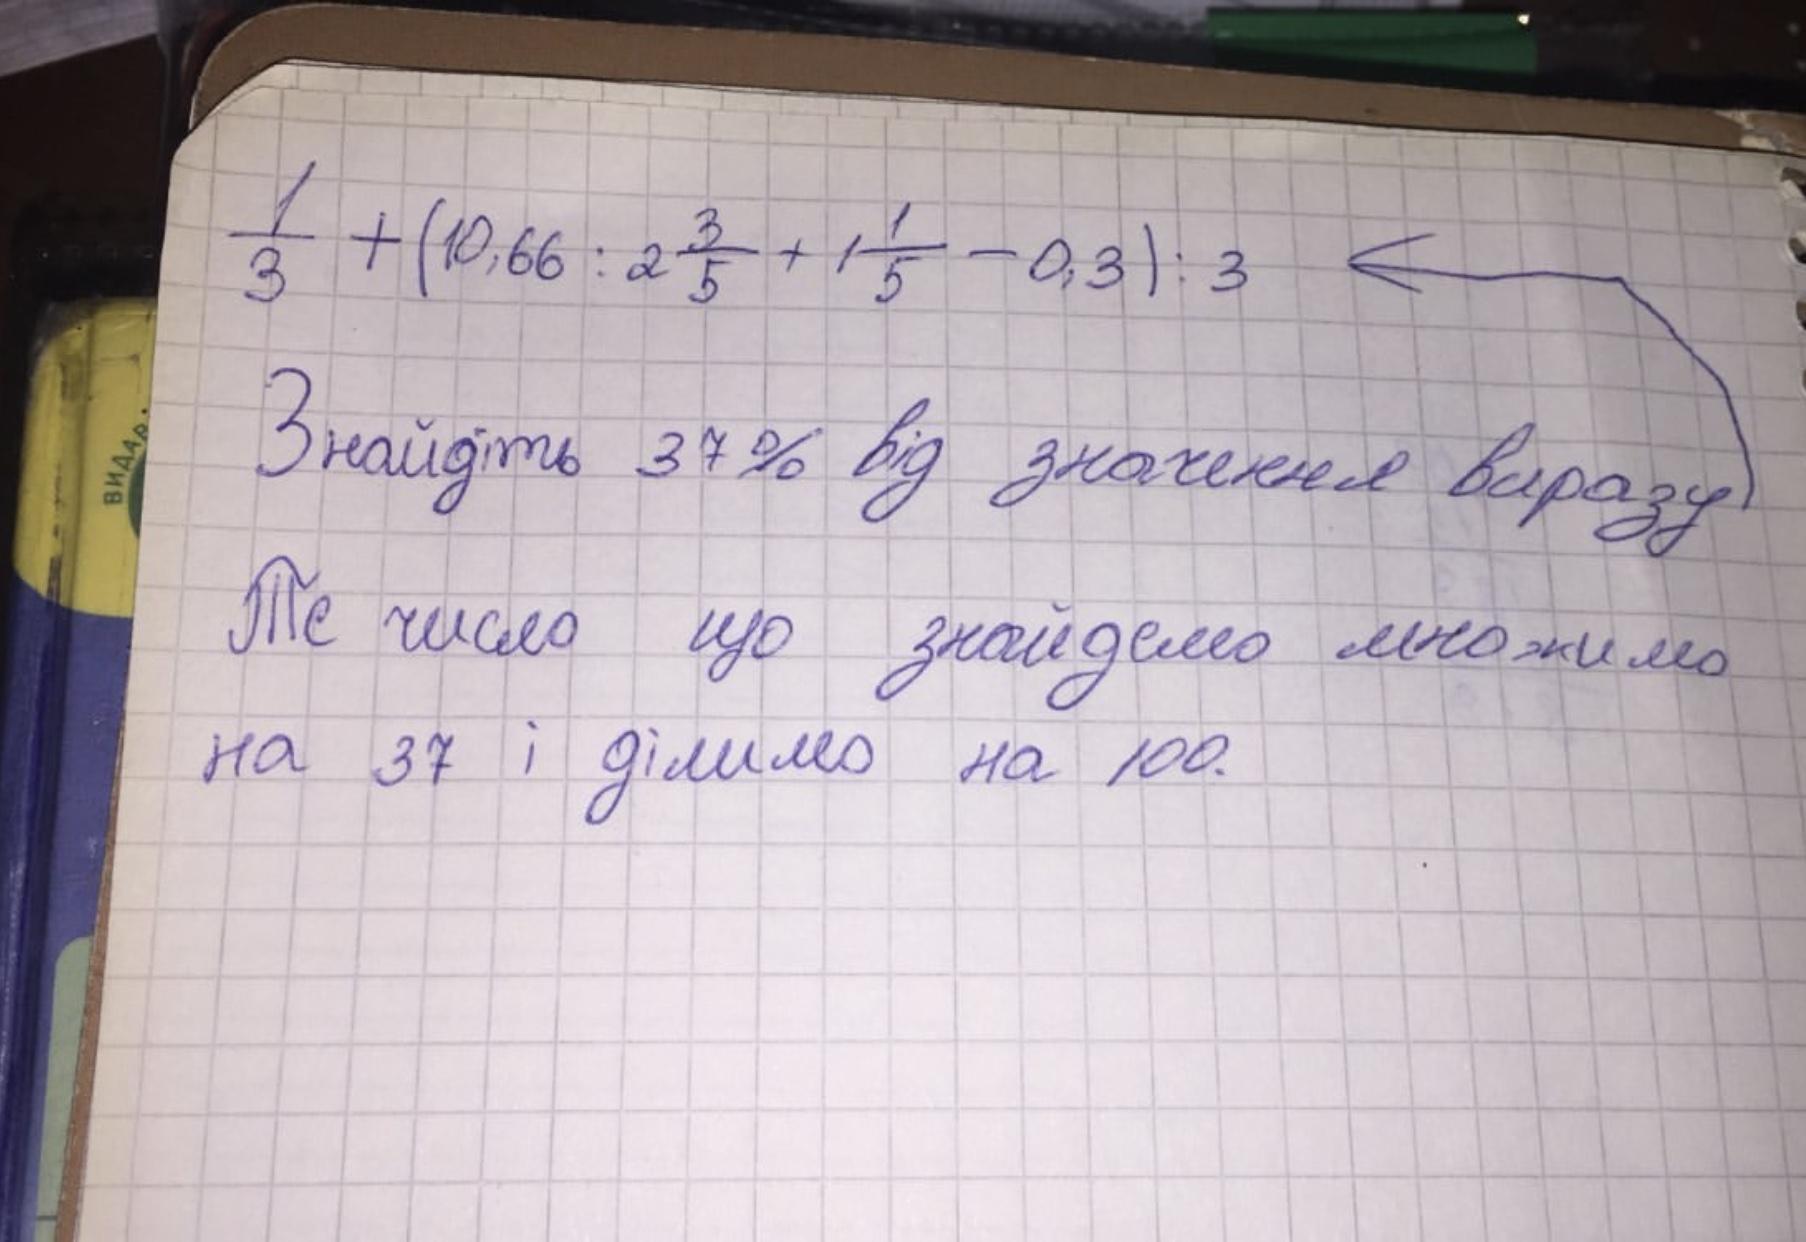 1/3 + (10,66 : 2 3/5 + 1 1/5 - 0,3) : 3
Знайдіть 37% від значення виразу
Те число що знайдемо множимо
на 37 і ділимо на 100.